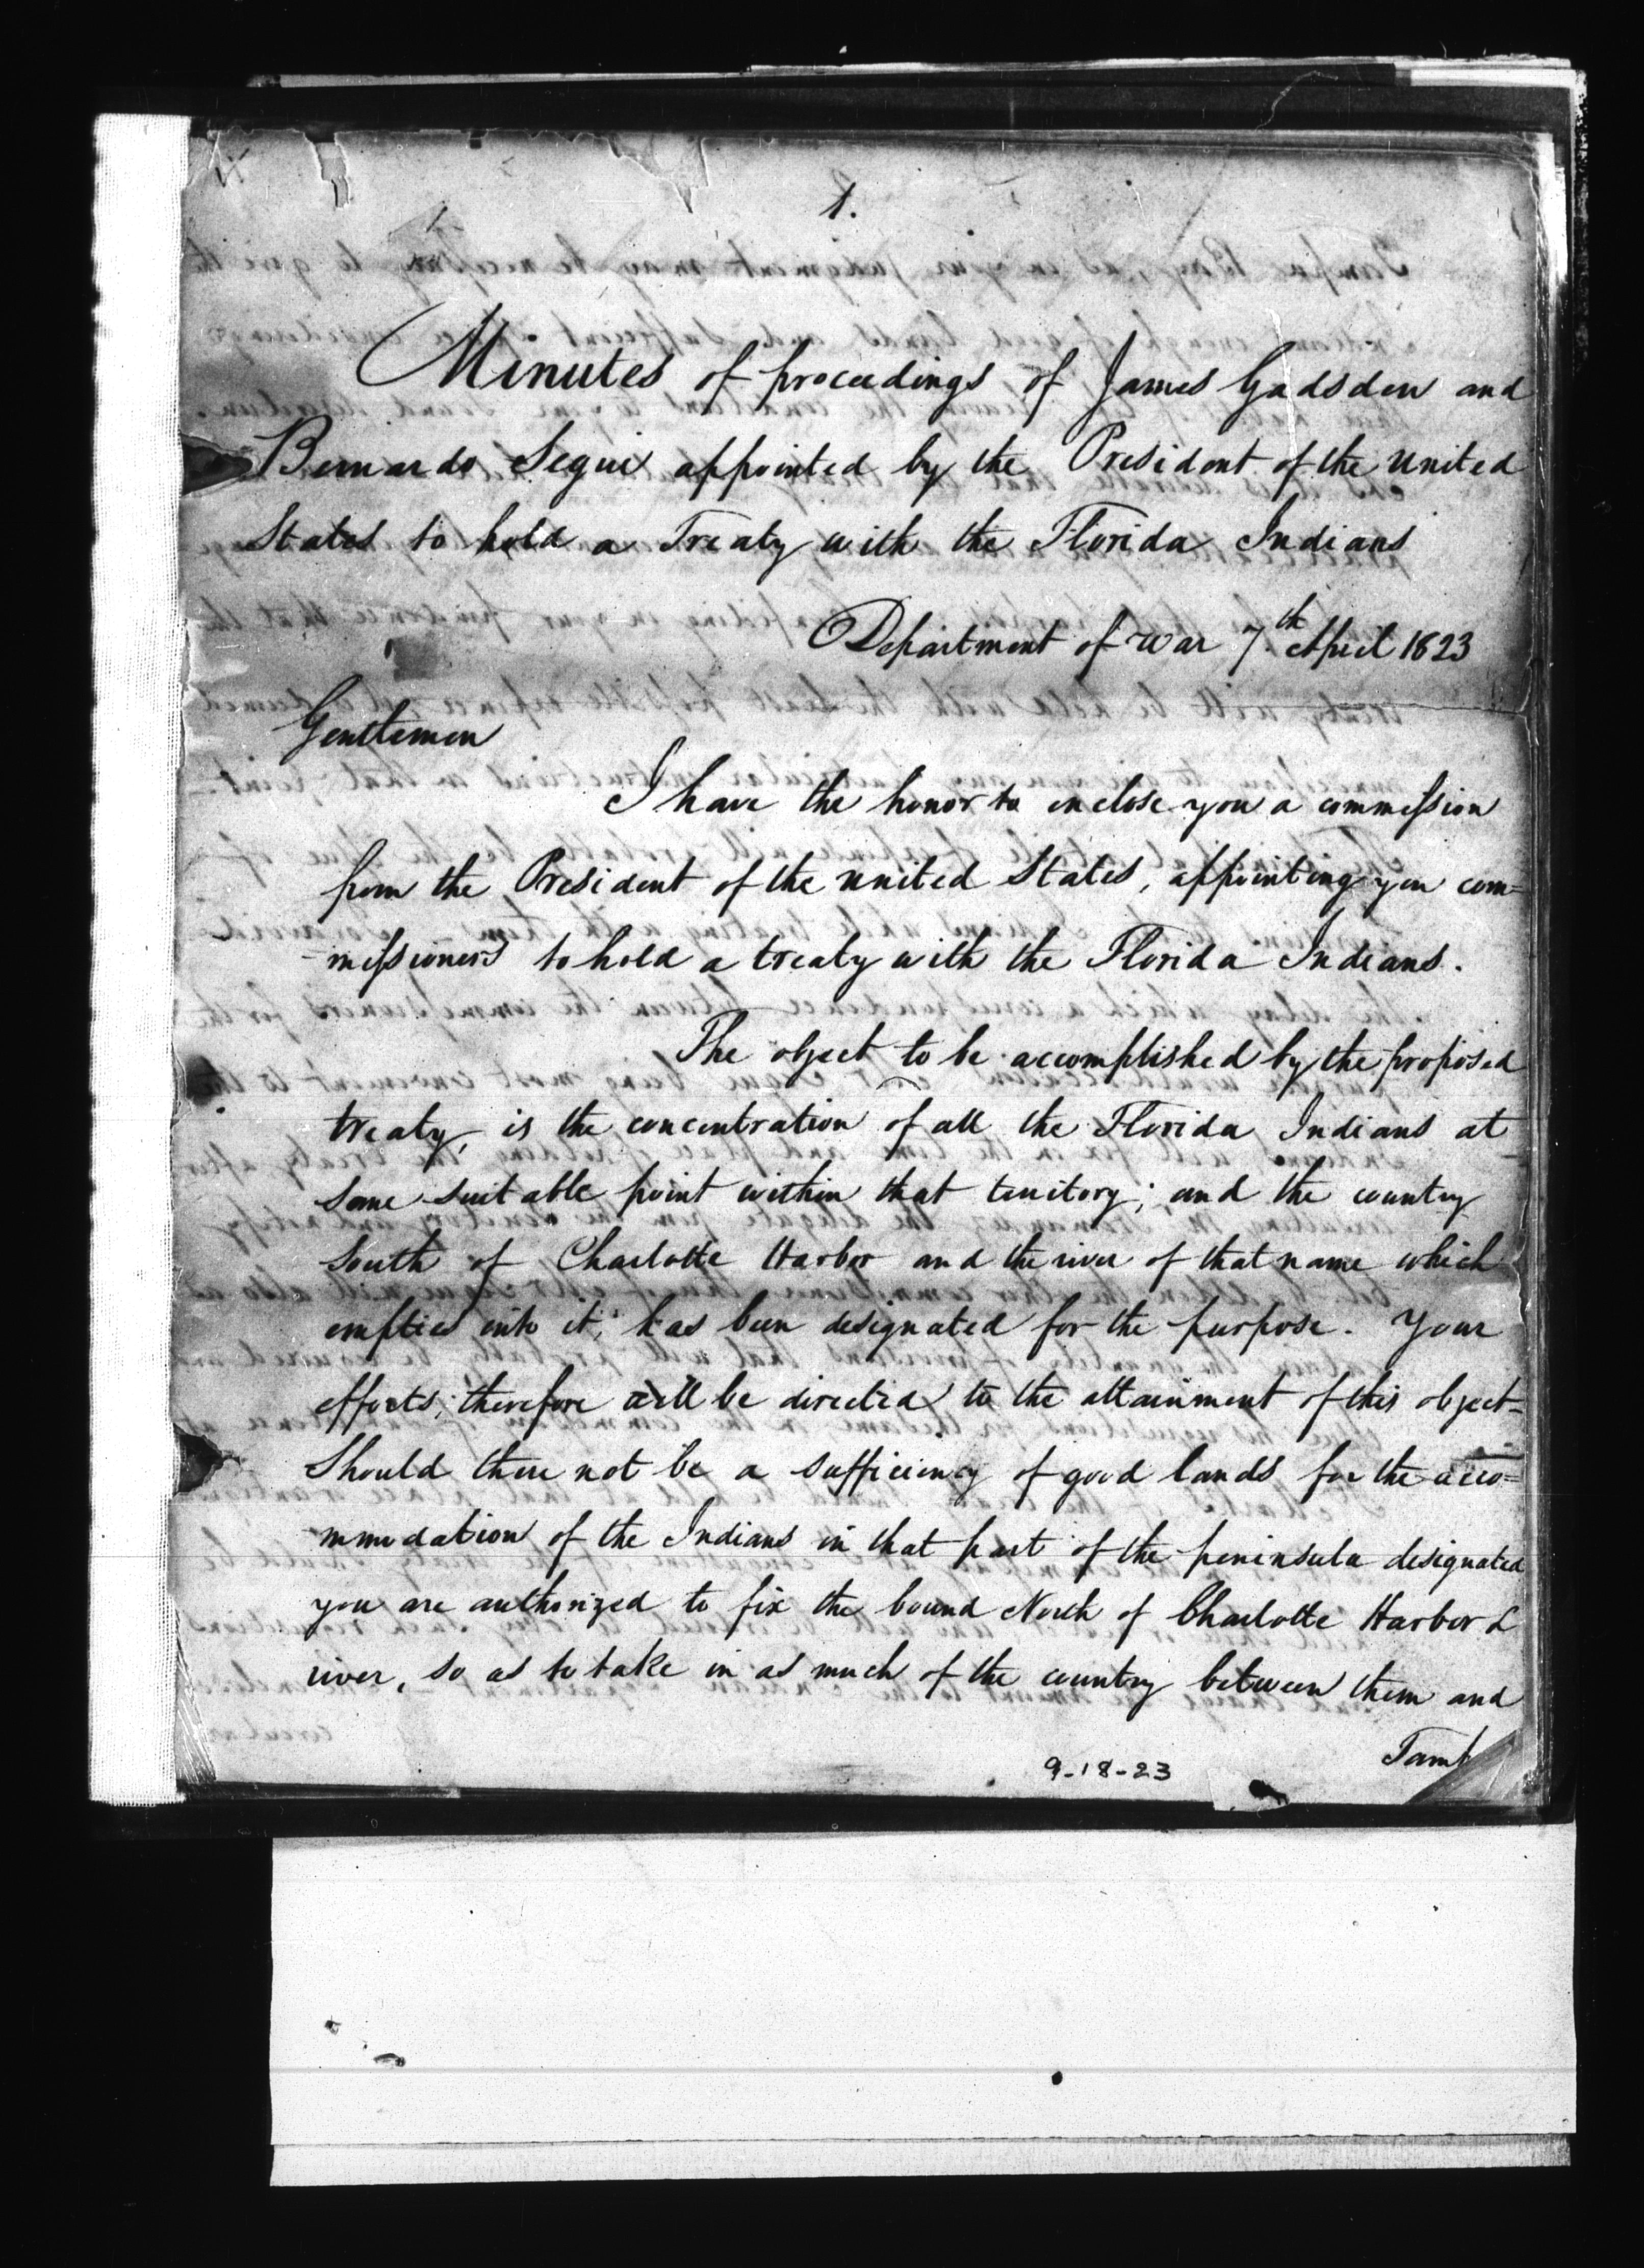 1.
Minutes of proceedings of James Gadsden and
Bernardo Segui appointed by the President of the United
States to hold a Treaty with the Florida Indians
Department of War 7.th April 1823
Gentlemen
I have the honor to enclose you a commission
from the President of the United States, appointing you com=
-missioners to hold a treaty with the Florida Indians.
The object to be accomplished by the proposed
treaty, is the concentration of all the Florida Indians at
some suitable point within that territory; and the country
South of Charlotte Harbor and the river of that name which
empties into it, has been designated for the purpose. Your
efforts, therefore will be directed to the attainment of this object-
Should there not be a sufficiency of good lands for the acco=
mmodation of the Indians in that part of the peninsula designated
you are authorized to fix the bound North of Charlotte Harbor &
river, so as to take in as much of the country between them and
Tamp
9-18-23